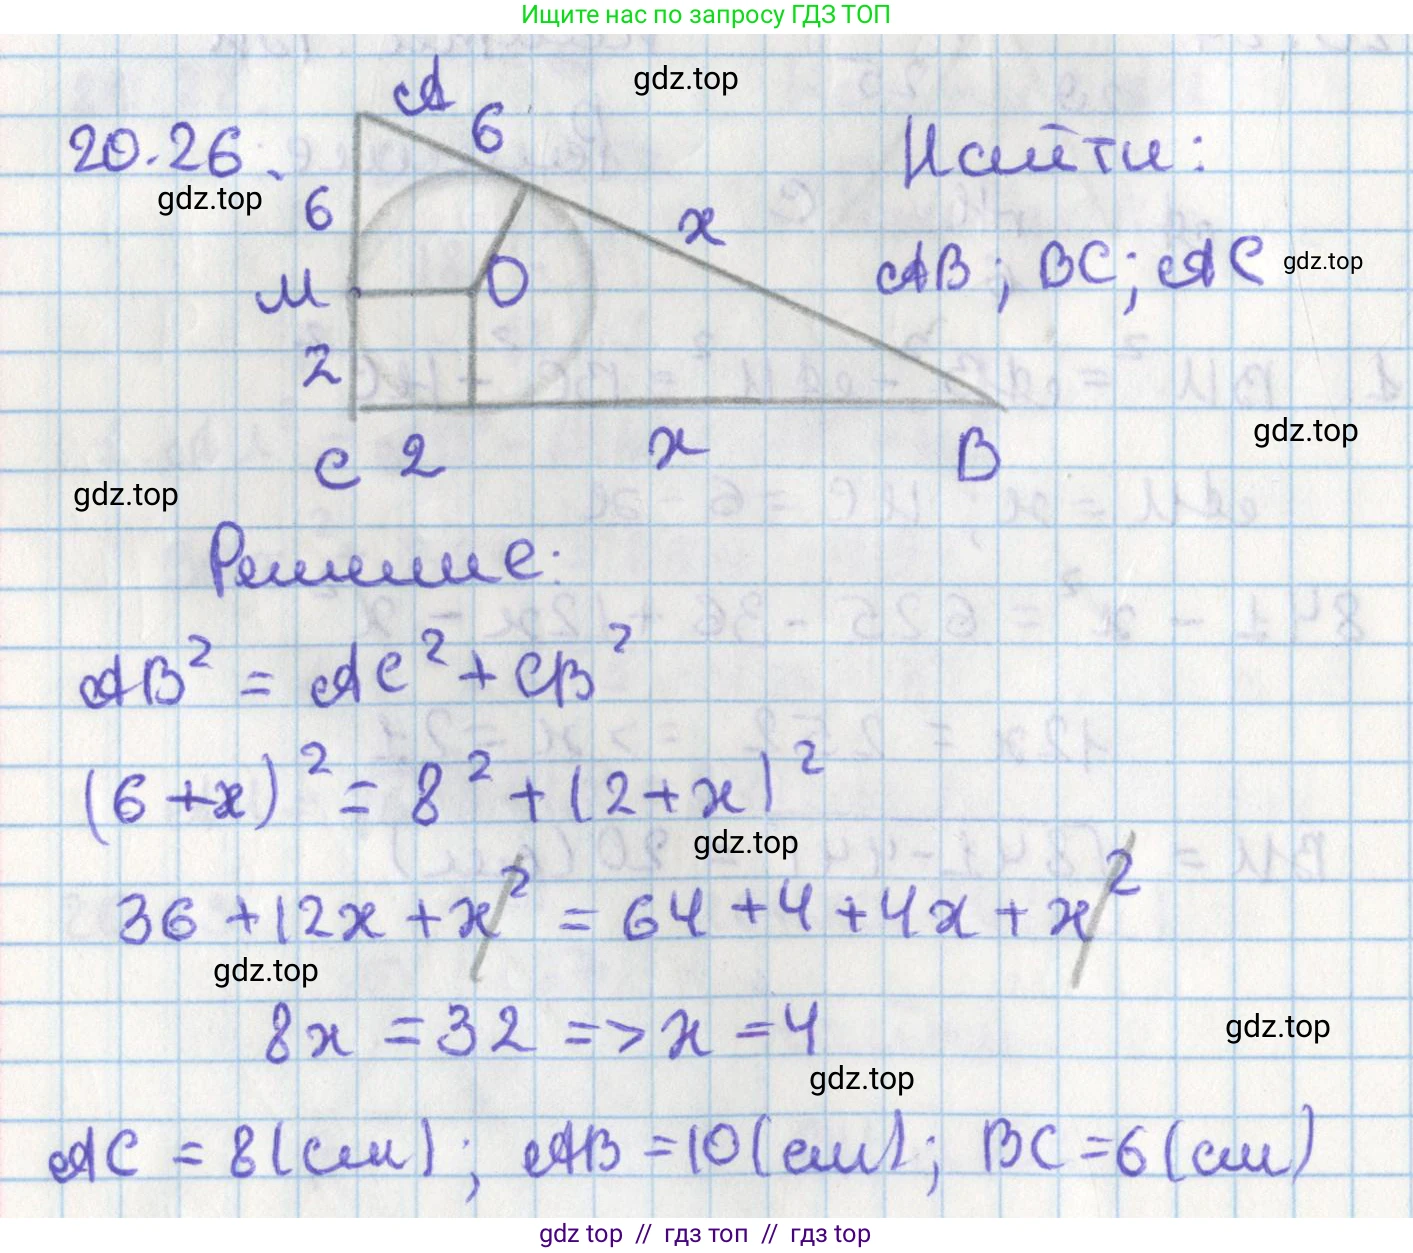 Ищите нас по запросу ГДЗ ТОП
gdz.top
20.26.
gdz.top
A
6
6
x
M
O
2
C
2
x
B
Найти:
AB; BC; AC
gdz.top
gdz.top
gdz.top
Решение:
AB² = AC² + CB²
(6+x)² = 8² + (2+x)²
gdz.top
36 + 12x + x² = 64 + 4 + 4x + x²
gdz.top
8x = 32 => x = 4
gdz.top
gdz.top
AC = 8 (см); AB = 10 (см); BC = 6 (см)
gdz top // гдз топ // гдз top